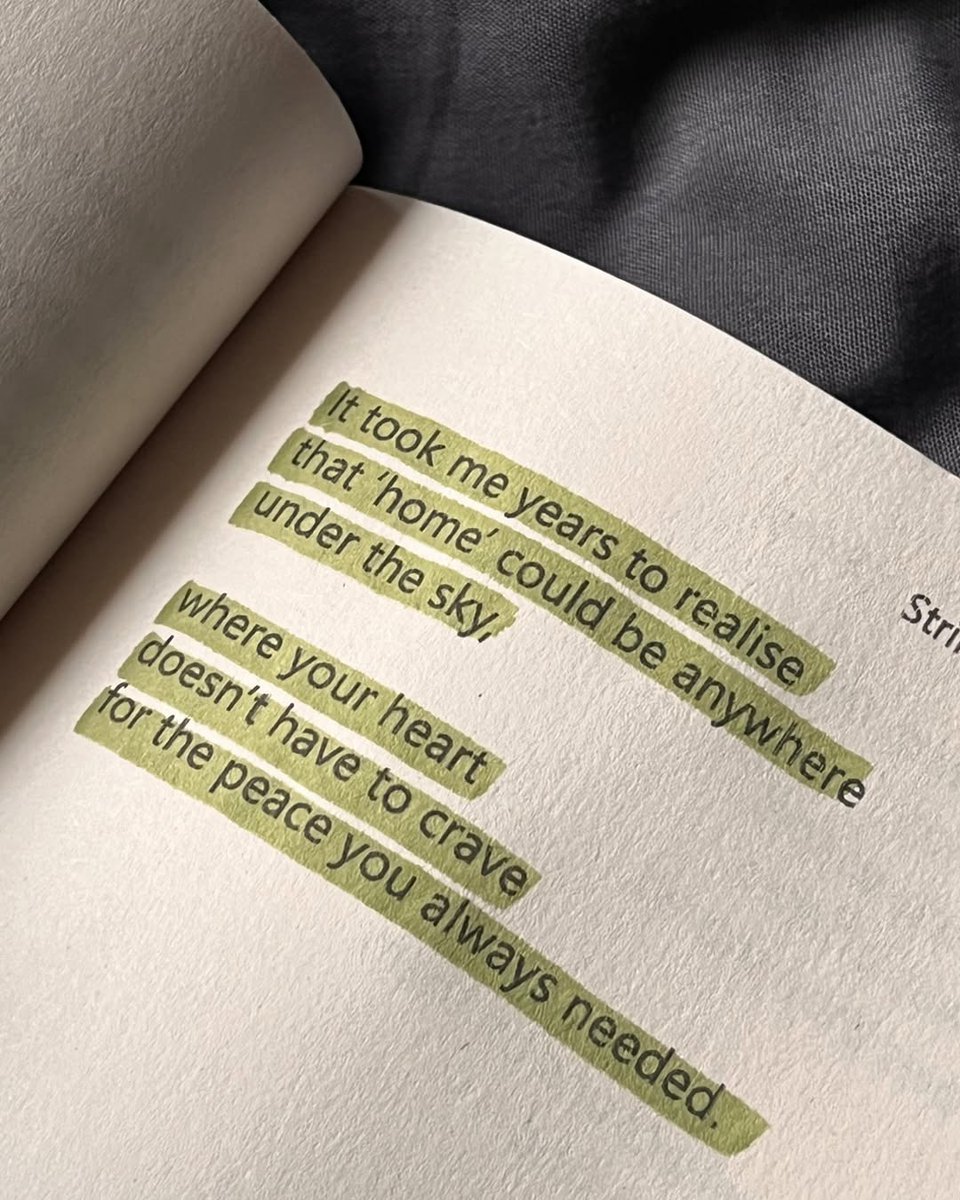 It took me years to realise
that ‘home’ could be anywhere
under the sky,
where your heart
doesn’t have to crave
for the peace you always needed.